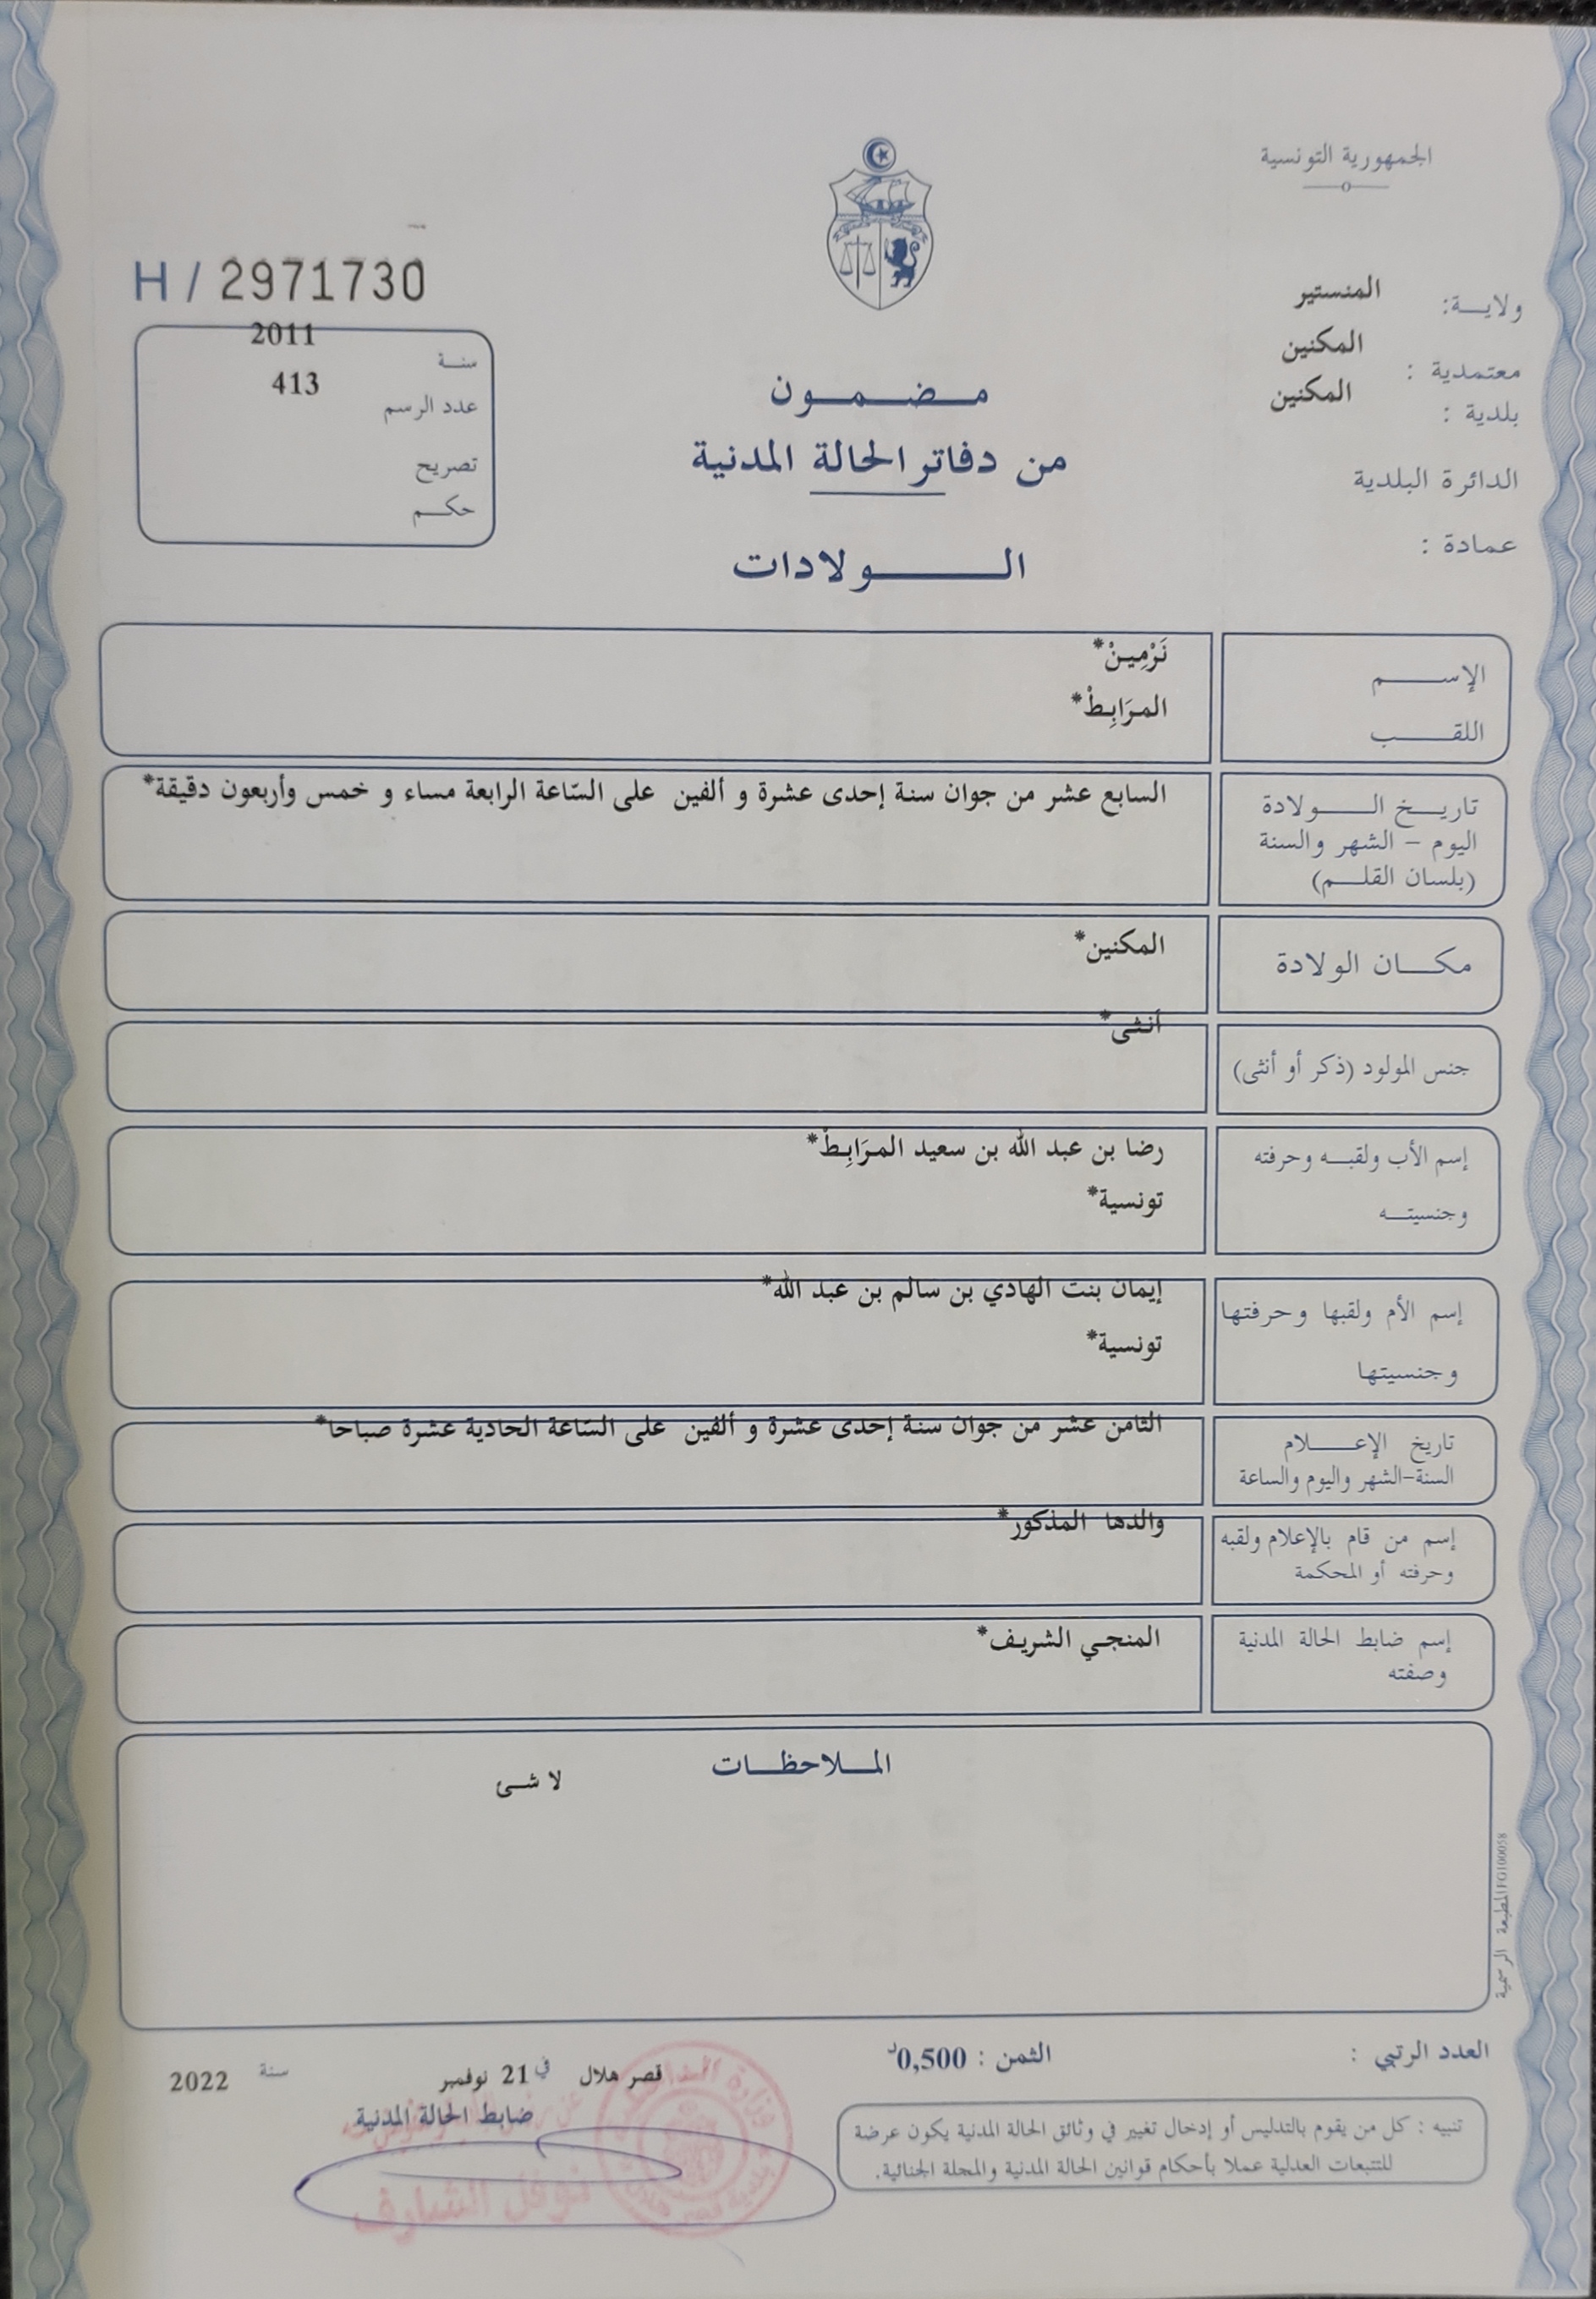 الجمهورية التونسية
H / 2971730
ولايـــة: المنستير
معتمدية : المكنين
بلدية : المكنين
الدائرة البلدية
عمادة :
سنـة 2011
عدد الرسم 413
تصريح
حكـم
مـضـمـون
من دفاتر الحالة المدنية
الـــولادات
الإســـم نَرْمِينْ*
اللقـــب المرَابِطْ*
تاريـخ الـــولادة
اليوم - الشهر والسنة
(بلسان القلـم)
السابع عشر من جوان سنة إحدى عشرة و ألفين على السّاعة الرابعة مساء و خمس وأربعون دقيقة*
مكـــان الولادة المكنين*
جنس المولود (ذكر أو أنثى) أنثى*
إسم الأب ولقبـه وحرفته رضا بن عبد الله بن سعيد المرَابِطْ*
وجنسيتـــه تونسية*
إسم الأم ولقبها وحرفتها إيمان بنت الهادي بن سالم بن عبد الله*
وجنسيتها تونسية*
تاريخ الإعـــلام
السنة-الشهر واليوم والساعة
الثامن عشر من جوان سنة إحدى عشرة و ألفين على السّاعة الحادية عشرة صباحا*
إسم من قام بالإعلام ولقبه
وحرفته أو المحكمة
والدها المذكور*
إسم ضابط الحالة المدنية
وصفته
المنجي الشريف*
المـلاحظـات
لا شئ
المطبعة الرسمية FG100058
العدد الرتبي :
الثمن : 0,500د
قصر هلال في 21 نوفمبر سنة 2022
ضابط الحالة المدنية
نوفل الشارف
وزارة الداخلية
بلدية قصر هلال
تنبيه : كل من يقوم بالتدليس أو إدخال تغيير في وثائق الحالة المدنية يكون عرضة
للتتبعات العدلية عملا بأحكام قوانين الحالة المدنية والمجلة الجنائية.